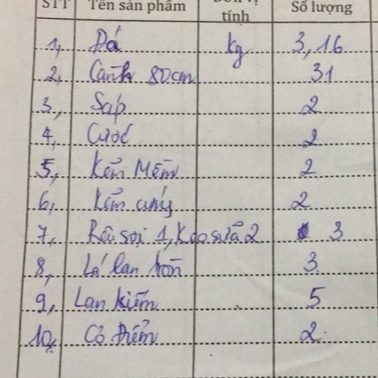 STT Tên sản phẩm Đơn vị tính Số lượng
1, Đá kg 3,16
2, Cành 80cm 31
3, Sáp 2
4, Cước 2
5, Kẽm Mềm 2
6, Kẽm cứng 2
7, Râu sợi 1, Keo sữa 2 3
8, Lá lan hồn 3
9, Lan kiếm 5
10, Cỏ điểm 2